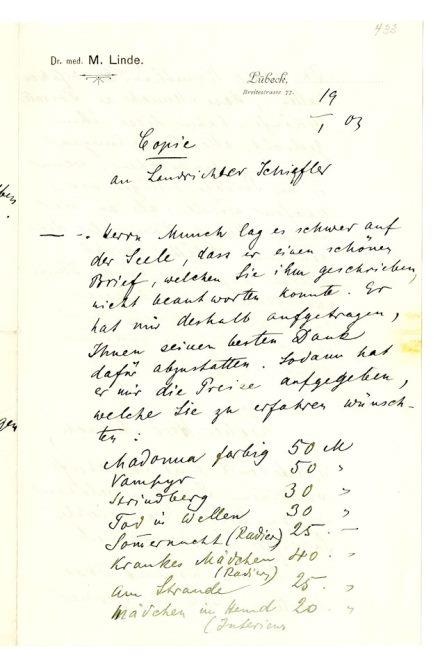 433
Dr. med. M. Linde.
Lübeck,
Breitestrasse 77.
19
I 03
Copie
an Landrichter Schiefler
— -. Herrn Munch lag es schwer auf
der Seele, dass er einen schönen
Brief, welchen Sie ihm geschrieben,
nicht beantworten konnte. Er
hat mir deshalb aufgetragen,
Ihnen seinen besten Dank
dafür abzustatten. Sodann hat
er mir die Preise aufgegeben,
welche Sie zu erfahren wünsch-
ten :
Madonna farbig 50 M
Vampyr 50 "
Strindberg 30 "
Tod in Wellen 30 "
Sommernacht (Radier) 25. —
Krankes Mädchen 40. "
(Radier)
am Strande 25. "
Mädchen in Hemd 20. "
(Interieur
gen